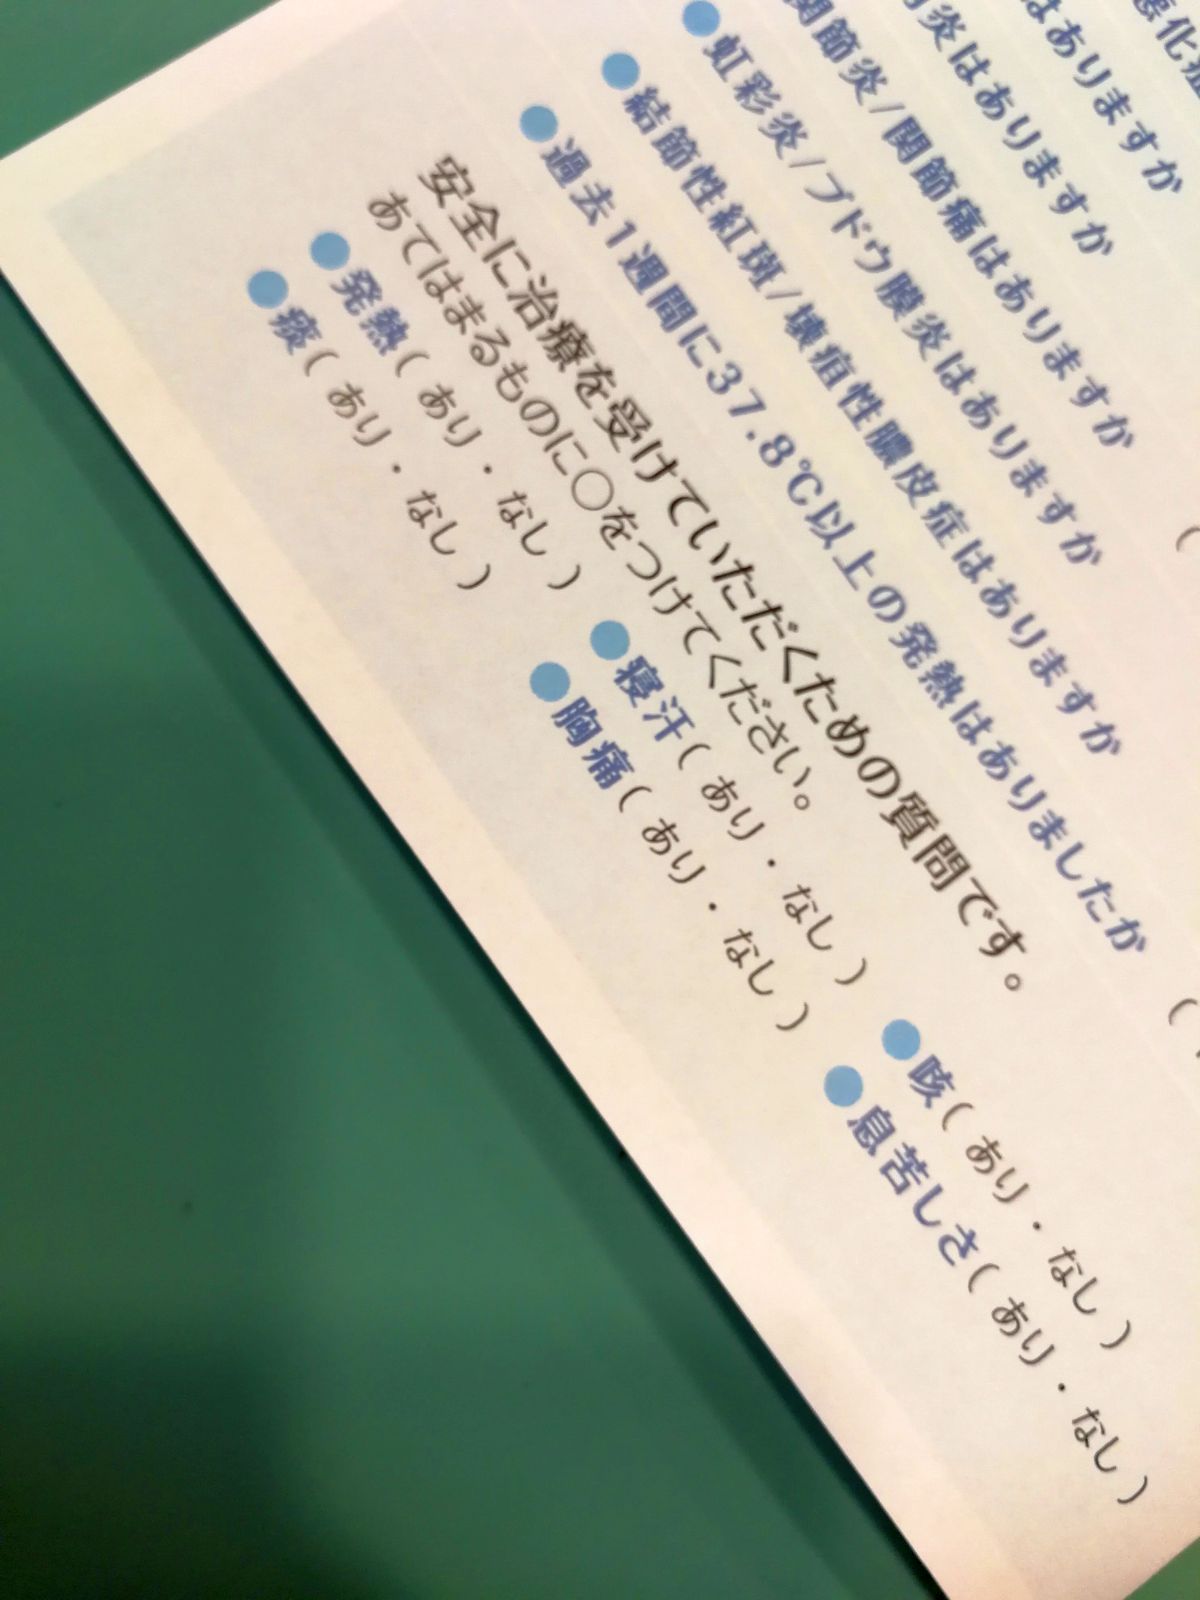 悪化
はありますか
炎はありますか
関節炎/関節痛はありますか
虹彩炎/ブドウ膜炎はありますか
結節性紅斑/壊疽性膿皮症はありますか
過去1週間に37.8℃以上の発熱はありましたか
安全に治療を受けていただくための質問です。
あてはまるものに○をつけてください。
発熱( あり・なし ) 寝汗( あり・なし ) 咳( あり・なし )
痰( あり・なし ) 胸痛( あり・なし ) 息苦しさ( あり・なし )